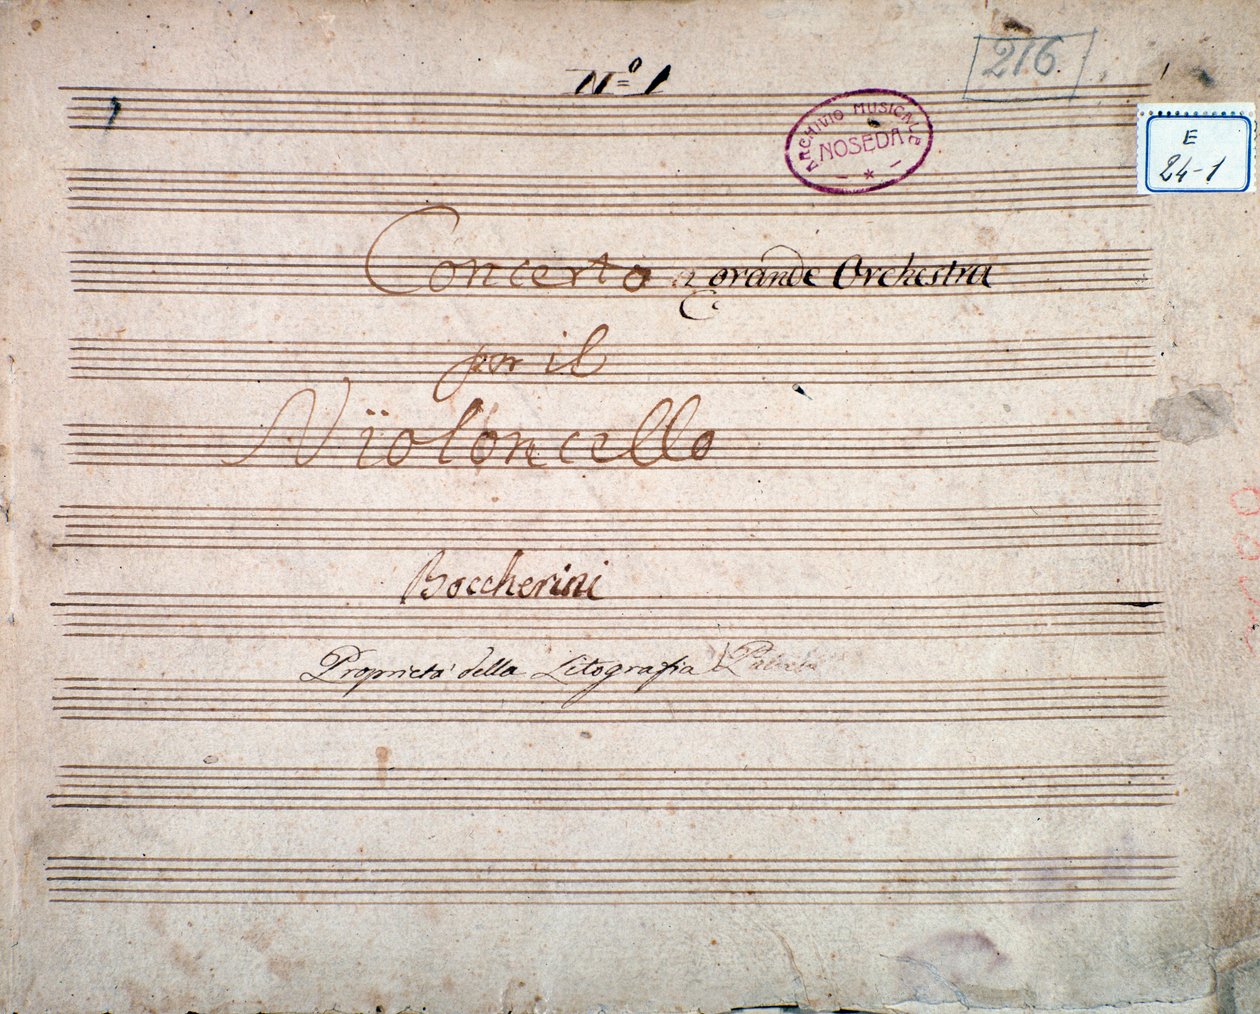 216
Nº 1
ARCHIVIO MUSICALE
NOSEDA
E
24-1
Concerto a grande Orchestra
per il
Vïoloncello
Boccherini
Proprietà della Litografia